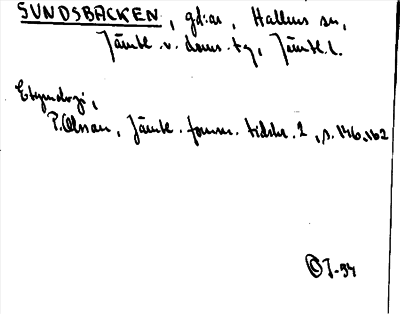 SUNDSBACKEN, gd:ar, Hallens sn,
Jämtl. v. doms. tg, Jämtl. l.
Etymologi,
P. Olsson, Jämtl. fornm. tidskr. 2, s. 146, 162
© J-94